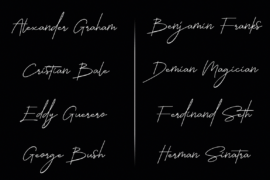 Alexander Graham
Cristian Bale
Eddy Guerero
George Bush
Benjamin Franks
Demian Magician
Ferdinand Seth
Herman Sinatra